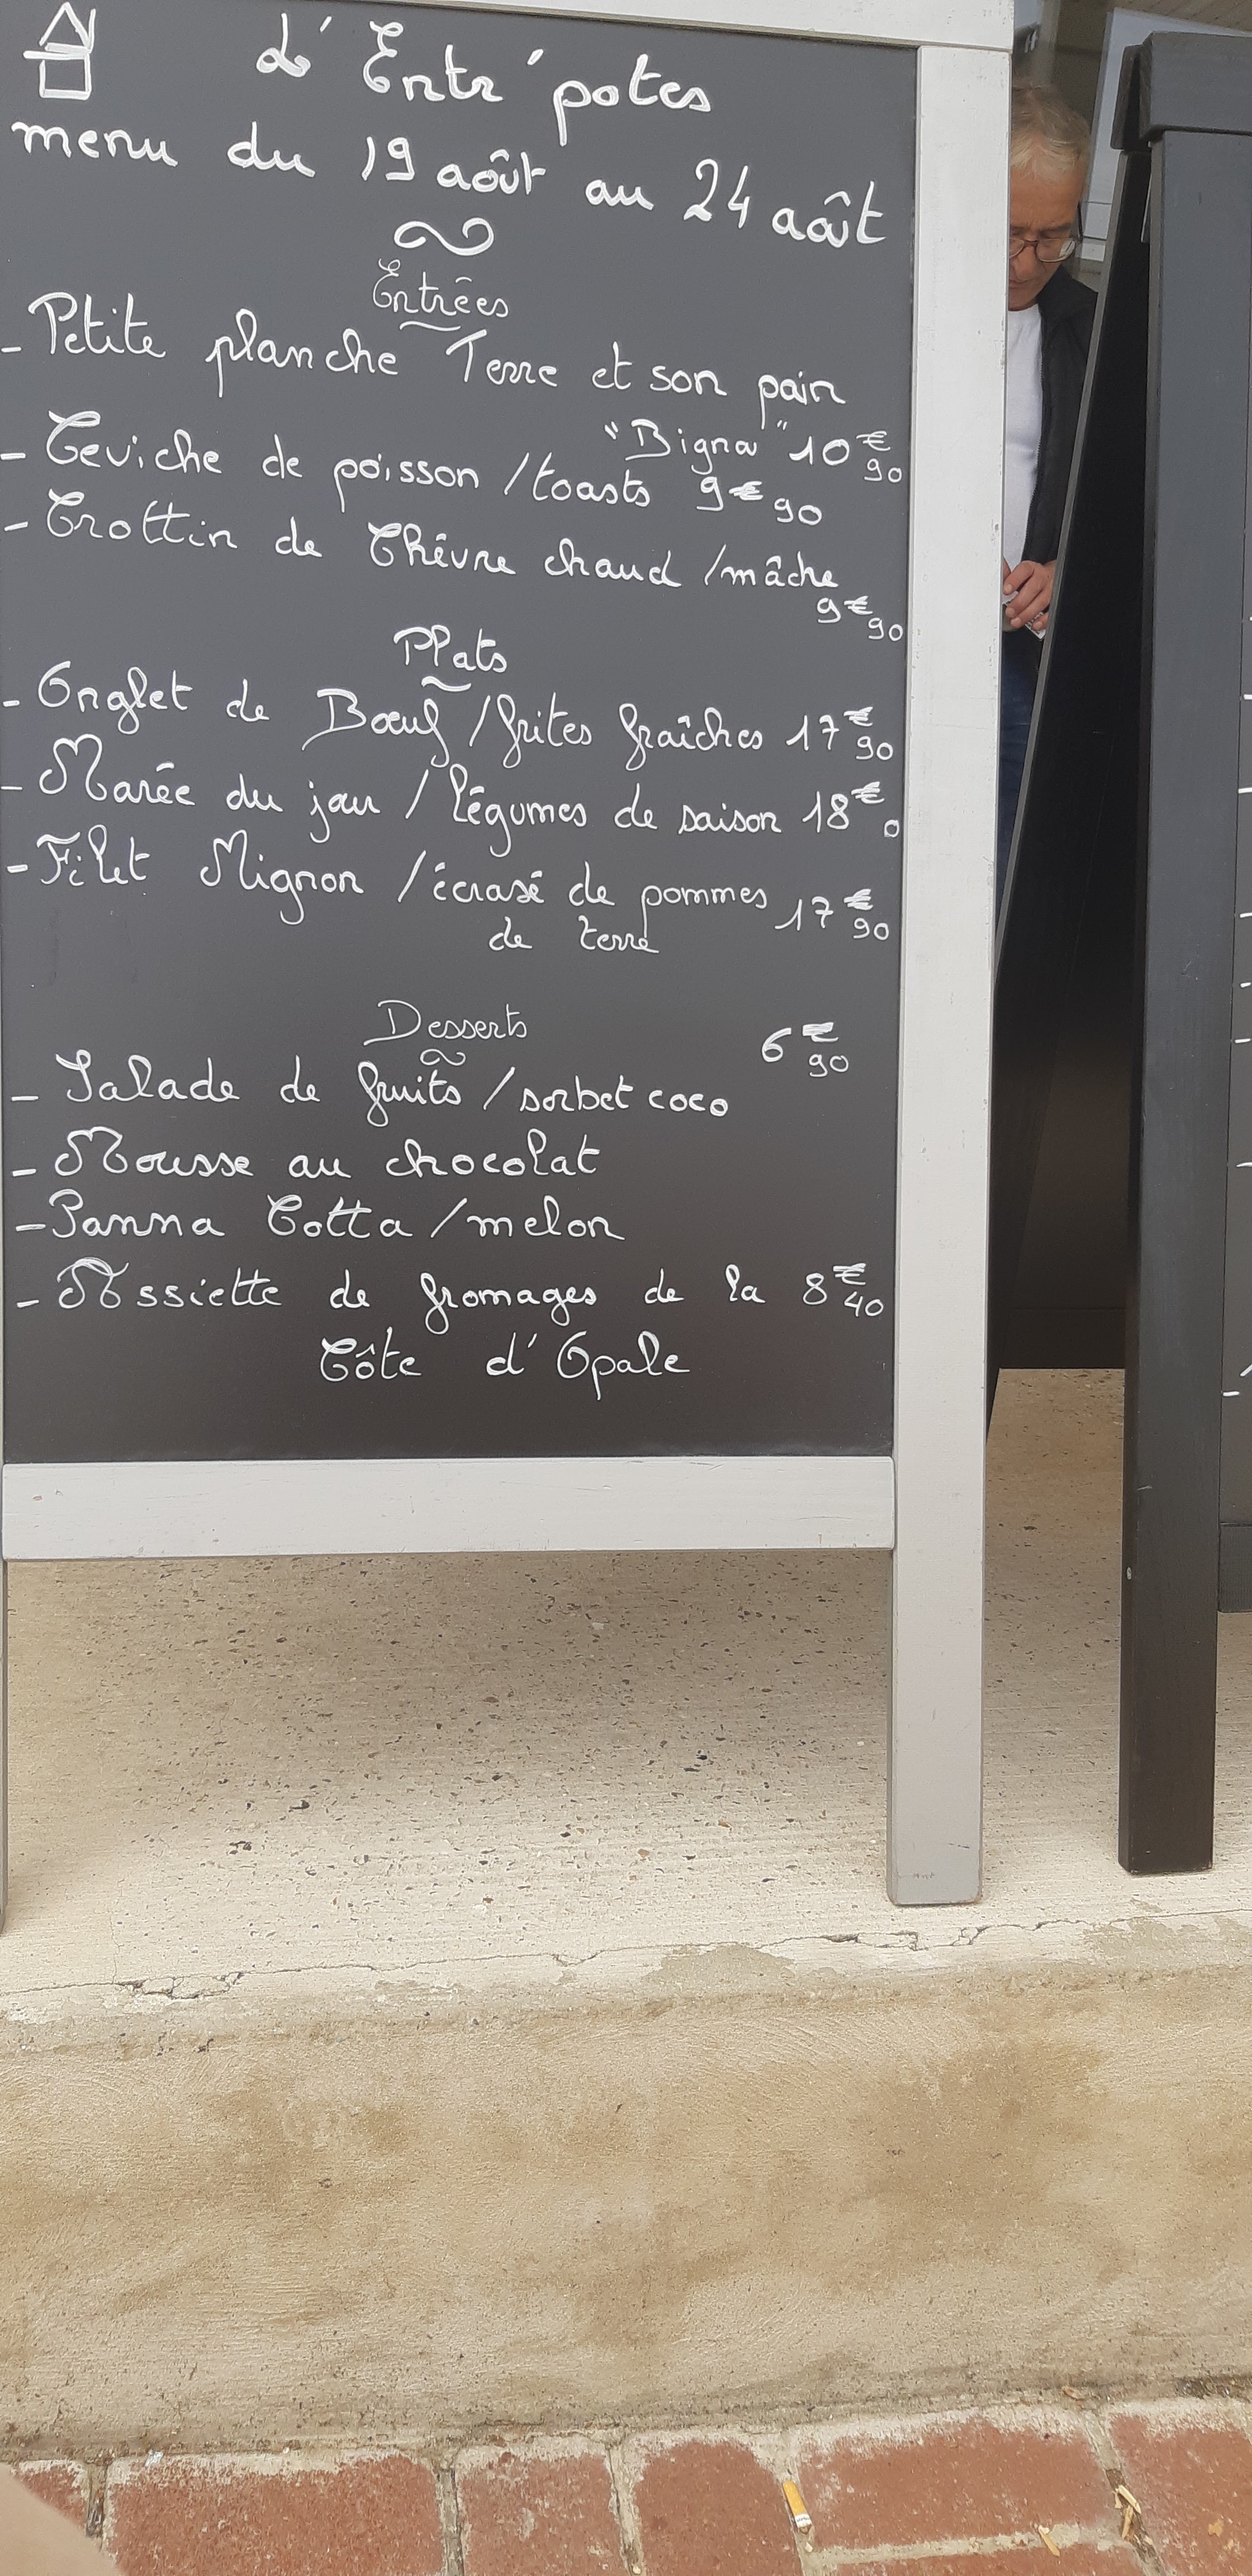 L'Entr'potes
menu du 19 août au 24 août
Entrées
- Petite planche Terre et son pain
"Bigna" 10€90
- Ceviche de poisson / toasts 9€90
- Crottin de Chêvre chaud / mâche
9€90
Plats
- Onglet de Bœuf / frites fraîches 17€90
- Marée du jour / légumes de saison 18€0
- Filet Mignon / écrasé de pommes 17€90
de terre
Desserts 6€90
- Salade de fruits / sorbet coco
- Mousse au chocolat
- Panna Cotta / melon
- Assiette de fromages de la 8€40
Côte d'Opale